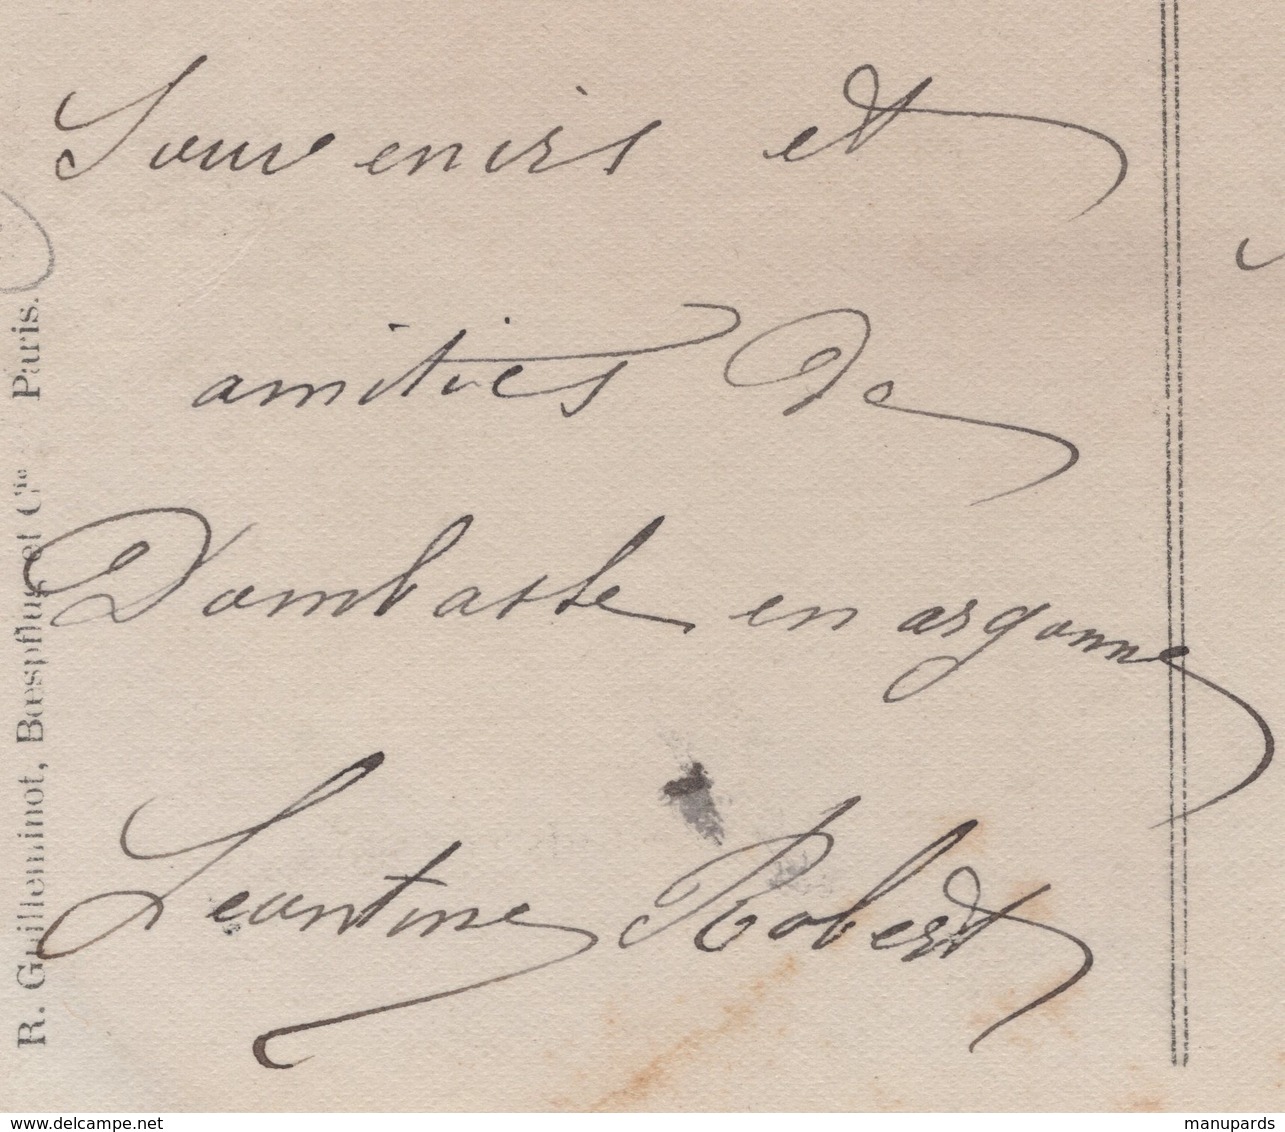 Souvenirs et
amities de
Dombasle en argonne
Leontine Robert
R. Guilleminot, Bœspflug et Cie Paris.
delcampe.net
manupards